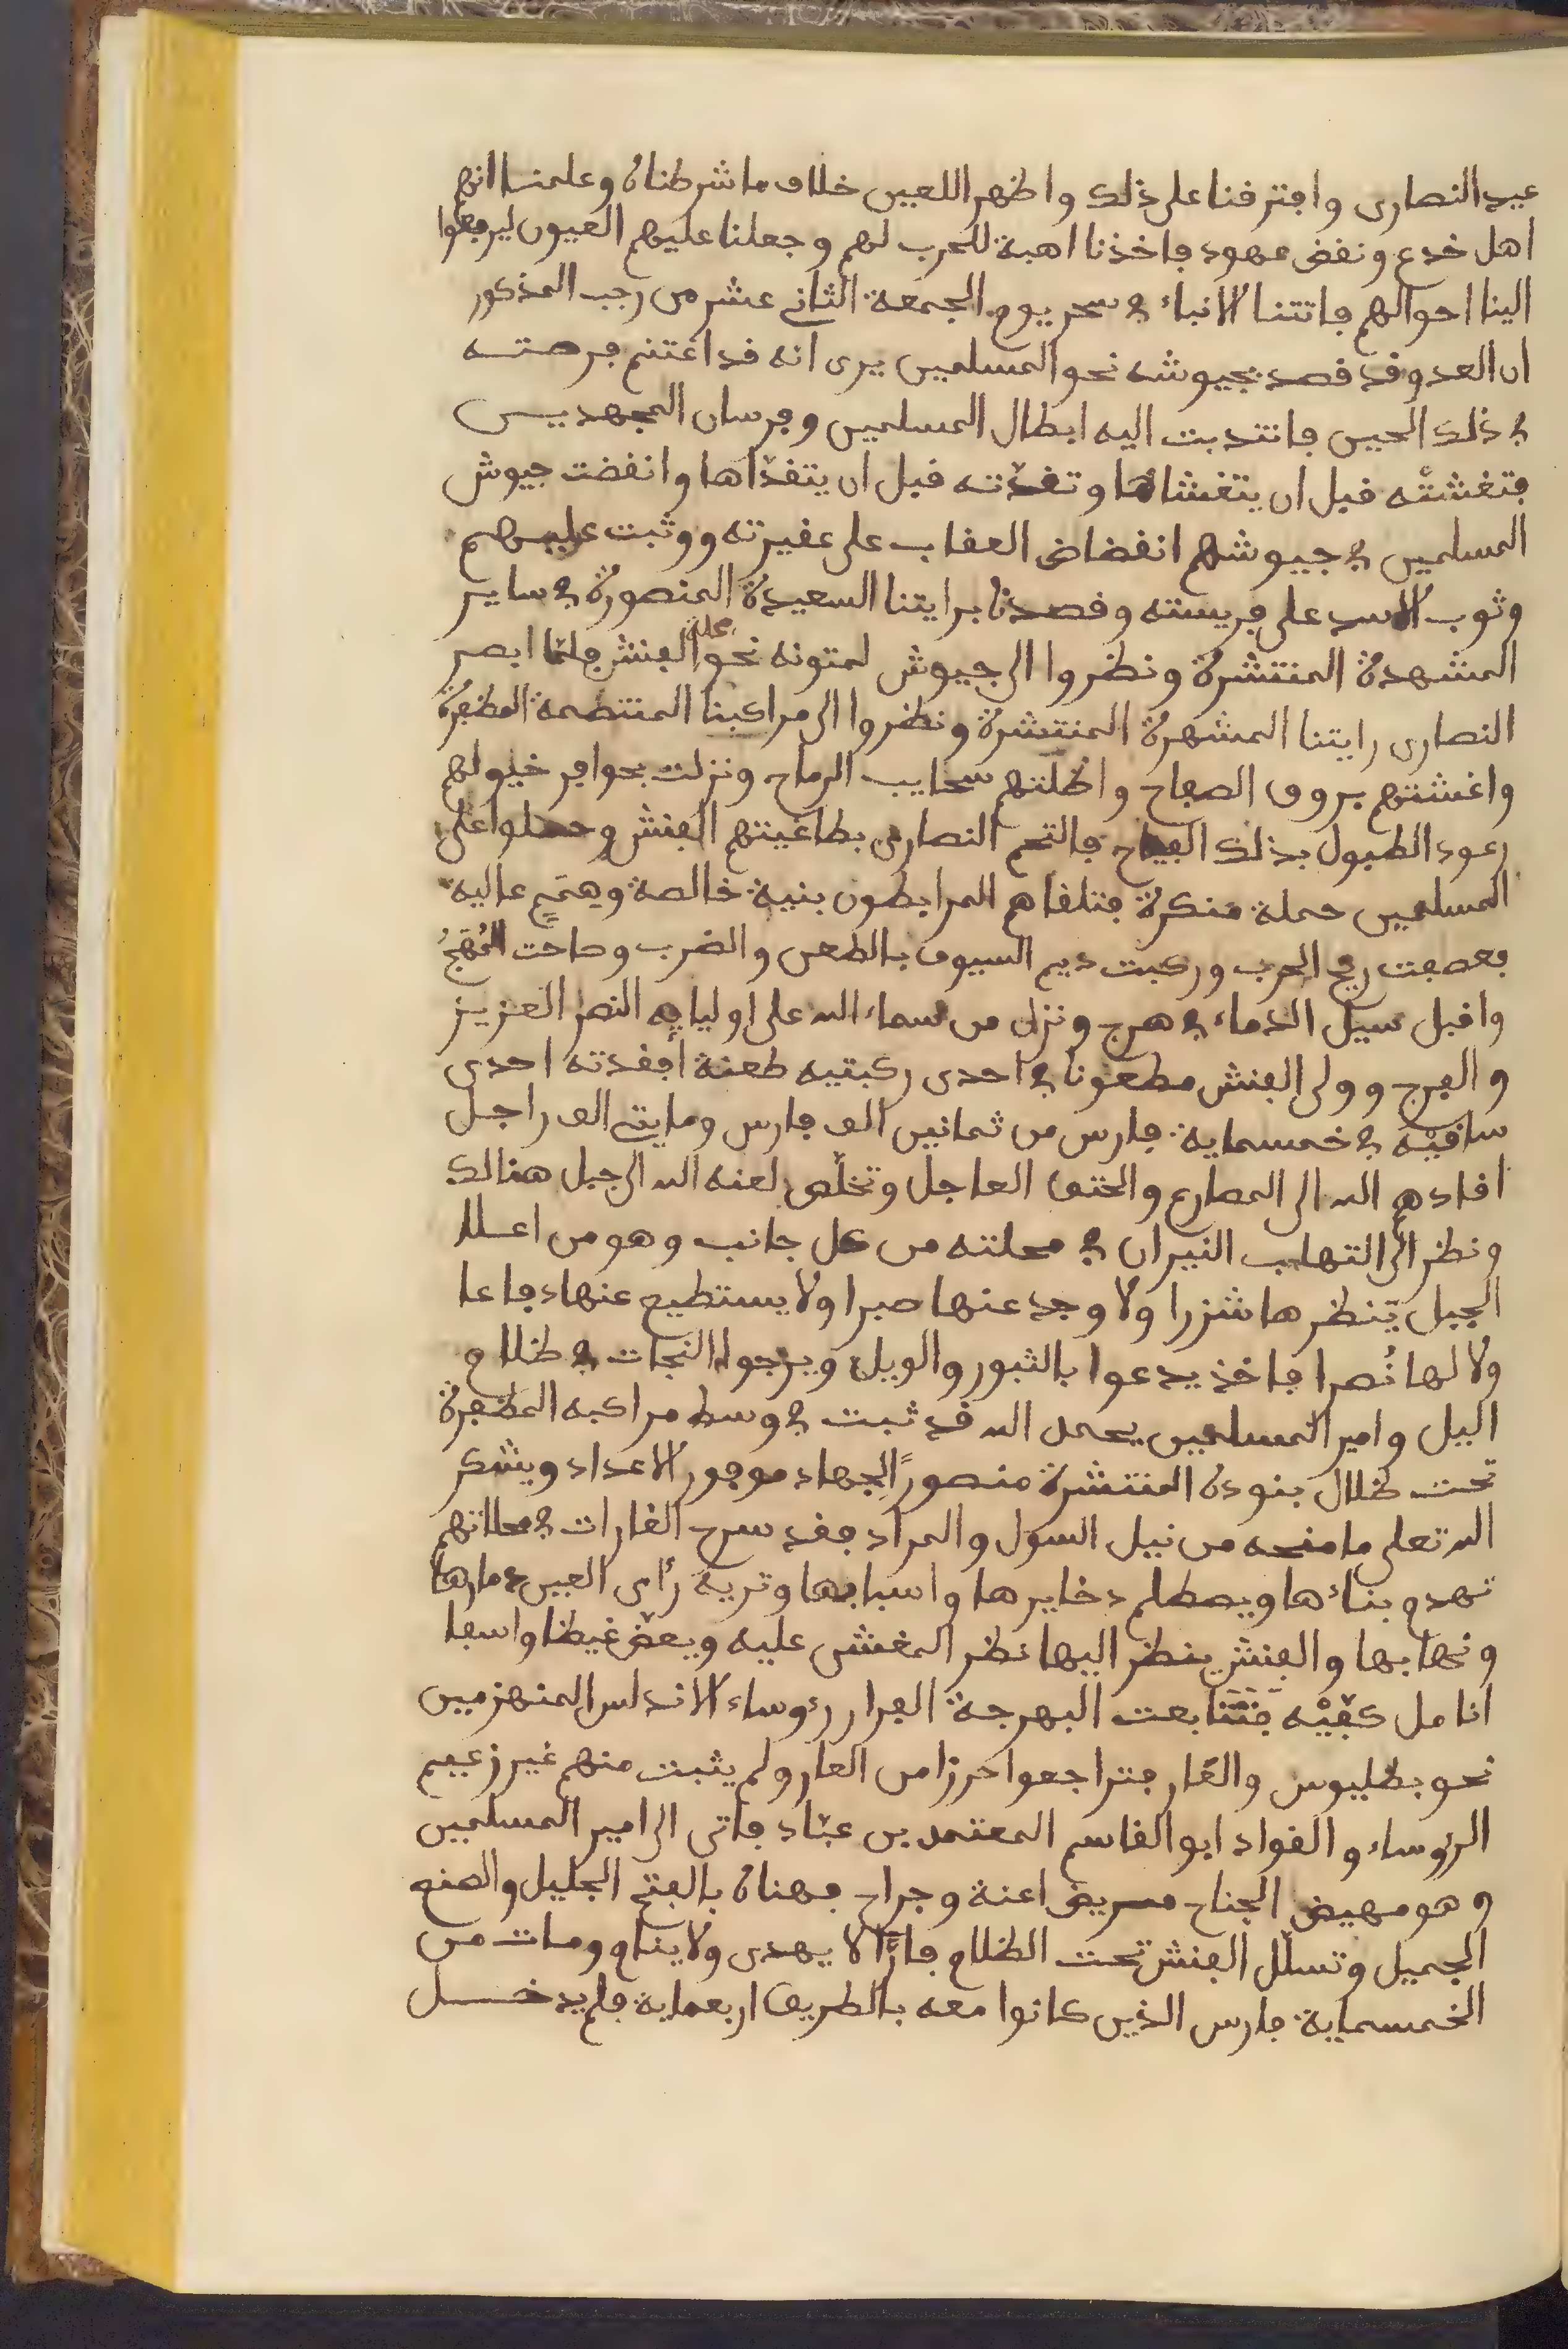 عيد النصارى وافترفنا على ذلك واظهر اللعين خلاف ما شرطناه وعلمنا انهم
اهل خدع ونقض عهود فاخذنا اهبة للحرب لهم وجعلنا عليهم العيون ليرفعوا
الينا احوالهم فاتتنا الانباء في سحر يوم الجمعة الثاني عشر من رجب المذكور
ان العدو قد قصد بجيوشه نحو المسلمين يرى انه قد اغتنم فرصته
في ذلك الحين فانتدبت اليه ابطال المسلمين وفرسان المجهدين
فتغشته قبل ان يتغشاها وتغدّته قبل ان يتغدّاها وانقضت جيوش
المسلمين في جيوشهم انقضاض العقاب على عقيرته ووثبت عليهم
وثوب الاسد على فريسته وقصدنا برايتنا السعيدة المنصورة في ساير
المشهدة المنتشرة ونظروا الى جيوش لمتونه نحو محلة الفنش فلمّا ابصر
النصارى رايتنا المشهرة المنتشرة ونظروا الى مراكبنا المنتظمة المظفرة
واغشتهم بروق الصفاح واظلّتهم سحايب الرماح ونزلت بحوافر خيولهم
رعود الطبول بذلك الفياح فالتحم النصارى بطاغيتهم الفنش وحملوا على
المسلمين حملة منكرة فتلقاهم المرابطون بنية خالصة وهمَمٍ عاليه
فعصفت ريح الحرب وركبت ديم السيوف بالطعن والضرب وطاحت المُهَجُ
واقبل سيل الدماء في هرج ونزل من سماء الله على اوليايه النصر العزيز
والفرج وولى الفنش مطعونا في احدى ركبتيه طعنة أفقدته احدى
ساقيه في خمسماية فارس من ثمانين الف فارس ومايتي الف راجل
اقادهم الله الى المصارع والحتف العاجل وتخلّص لعنه الله الى جبل هنالك
ونظر الى التهاب النيران في محلته من كل جانب وهو من اعلا
الجبل ينظرها شزرا ولا وجد عنها صبرا ولا يستطيع عنها دفاعا
ولا لها نُصرا فاخذ يدعوا بالثبور والويل ويرجوا النجات في ظلام
اليل وامير المسلمين بحمد الله قد ثبت في وسط مراكبه المظفرة
تحت ظلال بنوده المنتشرة منصورًا لجهاد موفور الاعداد ويشكر
الله تعلى ما منحه من نيل السول والمراد فقد سرح الغارات في محلاتهم
تهدم بناءها ويصطلم دخايرها واسبابها وتريه رأى العين دمارها
ونهابها والفنش ينظر اليها نظر المغشى عليه ويعضّ غيظا واسفا
انامل كفّيْه فتتابعت البهرجة الفرار رءوساء الاندلس المنهزمين
نحو بطليوس والغار فتراجعوا حرزا من العار ولم يثبت منهم غير زعيم
الرؤساء والقواد ابو القاسم المعتمد بن عبّاد فاتى الى امير المسلمين
وهو مهيض الجناح مريض اعنة وجراح فهناه بالفتح الجليل والصنع
الجميل وتسلّل الفنش تحت الظلام فارًّا لا يهدى ولا ينام ومات من
الخمسماية فارس الذين كانوا معه بالطريق اربعماية فلم يدخل